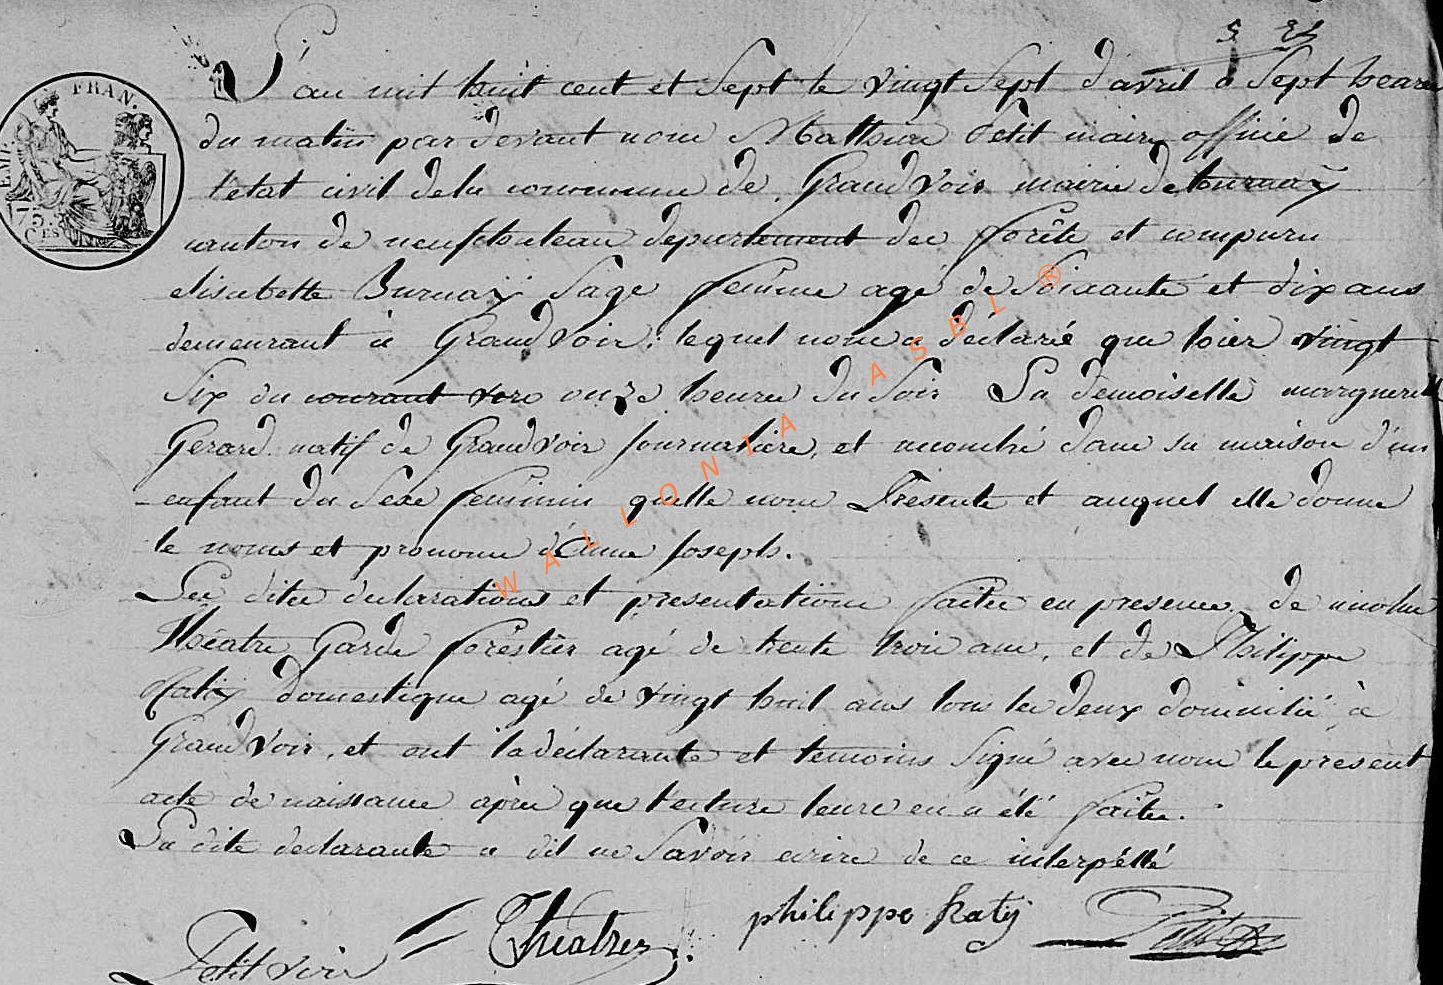 5 
FRAN.
EMP.
25
CES
L'an mil huit cent et Sept le vingt Sept d'avril a Sept heure
du matin par devant nous Mathieu Petit maire officie de
l'etat civil dela commune de Grand Voir mairie de tournay
canton de neufchateau departement des forêts et comparu
elisabette Burnaÿ Sage femme agé de Soixante et dix ans
demeurant à Grand Voir, lequel nous a déclaré que hier vingt
Six du courant vers onze heures du Soir La demoiselle marguerite
Gerard natif de Grand Voir Journaliere, et accouché dans sa maison d'un
enfant du Sexe feminin quelle nous Présente et auquel elle donne
le noms et pronoms d'Anne Joseph.
Les dites declarations et présentations faites en presence de nicolas
Théatre Garde forestier agé de trente trois ans, et de Philippe
domestique agé de vingt huit ans tous les deux domicilié à
Grand Voir, et ont la déclarante et temoins Signé avec nous le présent
acte de naissance après que lecture leure en a été faite.
La dite declarante a dit ne Savoir ecrire de ce interpéllé
philippe
Petit voir
Petit
WALLONIA ASBL ®